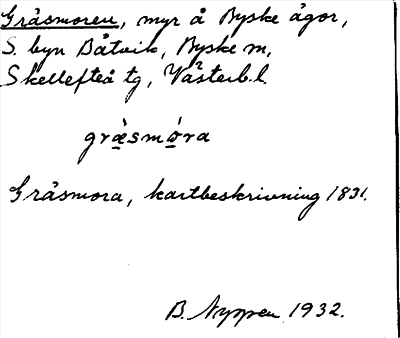 Gråsmoren, myr å Byske ägor,
S. byn Båtvik, Byske sn,
Skellefteå tg, Västerb. l.
gräsmøra
Gråsmora, kartbeskrivning 1831.
B. Nyppen 1932.